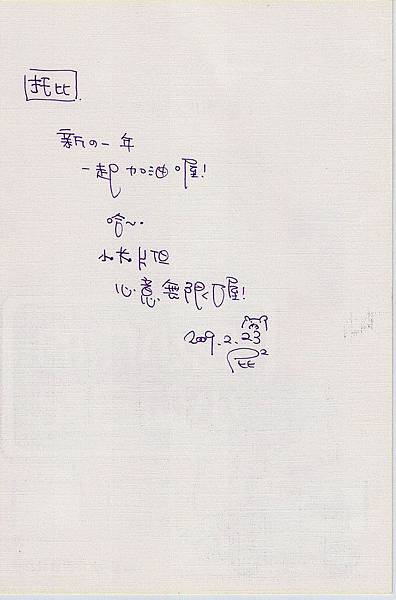 托比
新の一年
一起加油喔!
哈~..
小卡片但
心意無限ㄉ喔!
2009.2.23
屁²